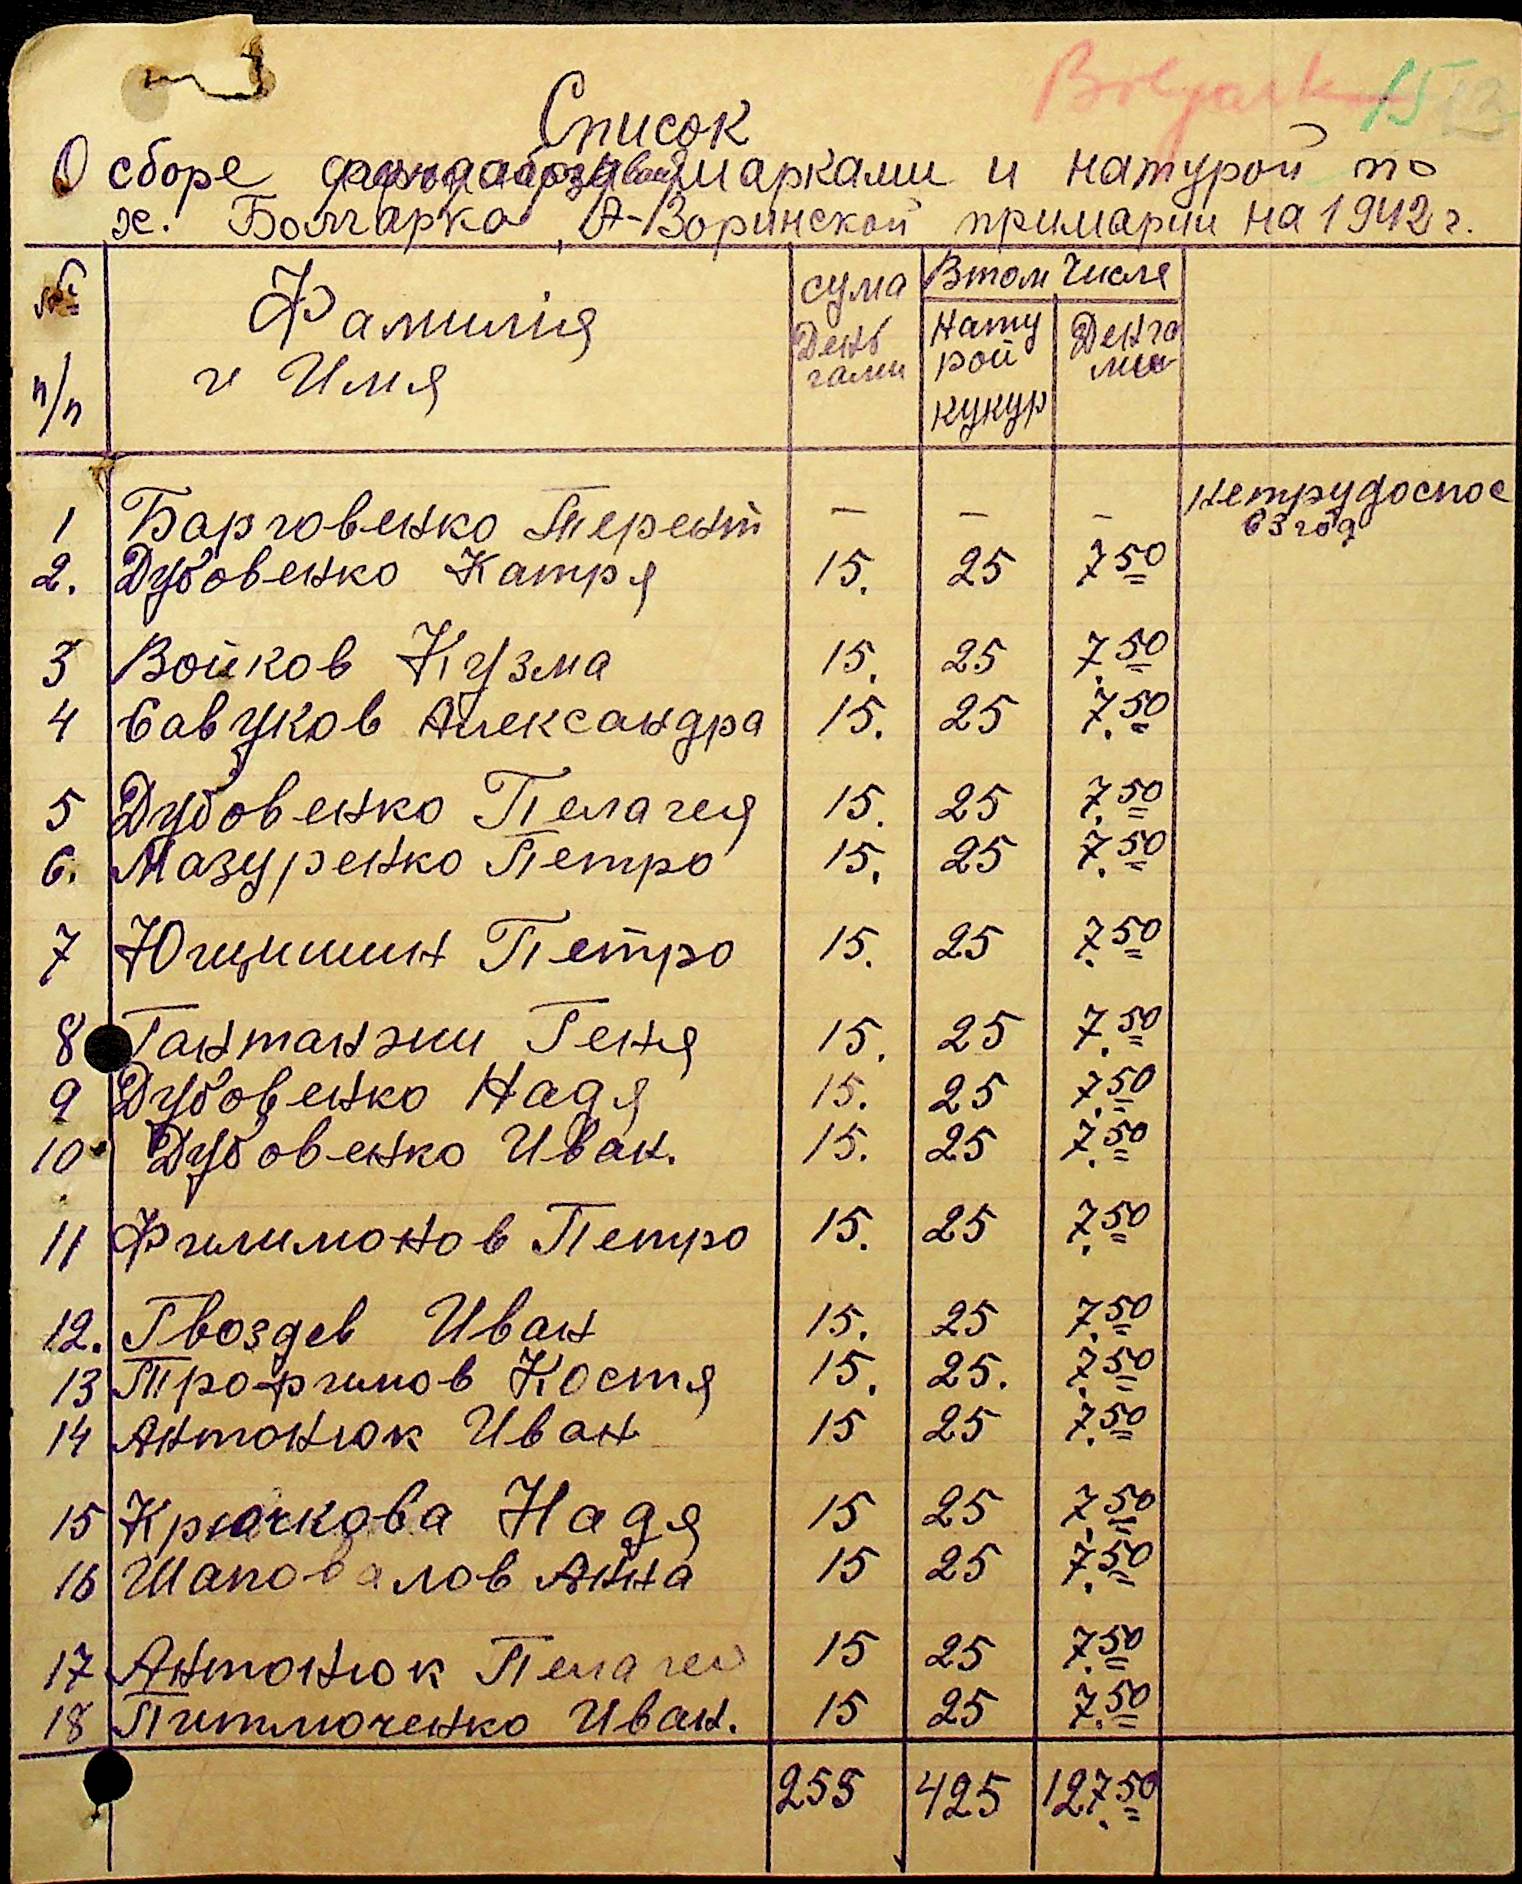 Bolgark 15
Список
О сборе марками и натурой по
х. Болгарка, А-Зоринской примарии на 1942 г.
№ п/п Фамилия и Имя сума Деньгами Втом Числе Натурой кукур Денгами
1 Барговенко Терент — — — нетрудоспос 63 год
2. Дубовенко Катря 15. 25 7.50
3 Войков Кузма 15. 25 7.50
4 Савуков Александра 15. 25 7.50
5 Дубовенко Пелагея 15. 25 7.50
6. Мазуренко Петро 15. 25 7.50
7 Югишин Петро 15. 25 7.50
8 Гантанжи Геня 15. 25 7.50
9 Дубовенко Надя 15. 25 7.50
10 Дубовенко Иван. 15. 25 7.50
11 Филимонов Петро 15. 25 7.50
12. Гвоздев Иван 15. 25 7.50
13 Трофимов Костя 15. 25. 7.50
14 Антонюк Иван 15 25 7.50
15 Крючкова Надя 15 25 7.50
16 Шаповалов Анна 15 25 7.50
17 Антонюк Пелагея 15 25 7.50
18 Питмоченко Иван. 15 25 7.50
255 425 127.50